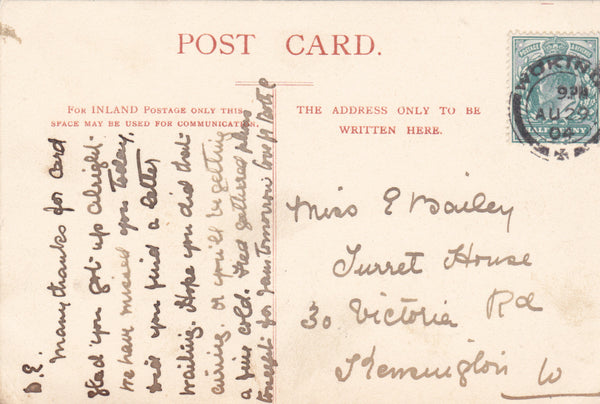 POST CARD.
FOR INLAND POSTAGE ONLY THIS
SPACE MAY BE USED FOR COMMUNICATION.
THE ADDRESS ONLY TO BE
WRITTEN HERE.
WOKING
AU 29
04
HALFPENNY
D. E.
Many thanks for card
glad you got up alright.
we have missed you today,
did you find a letter
waiting. Hope you did that
airing, or you'll be getting
a fine cold. Fred gathered plums
tonight for jam tomorrow love
Miss E Bailey
Turret House
30 Victoria Rd
Kensington W